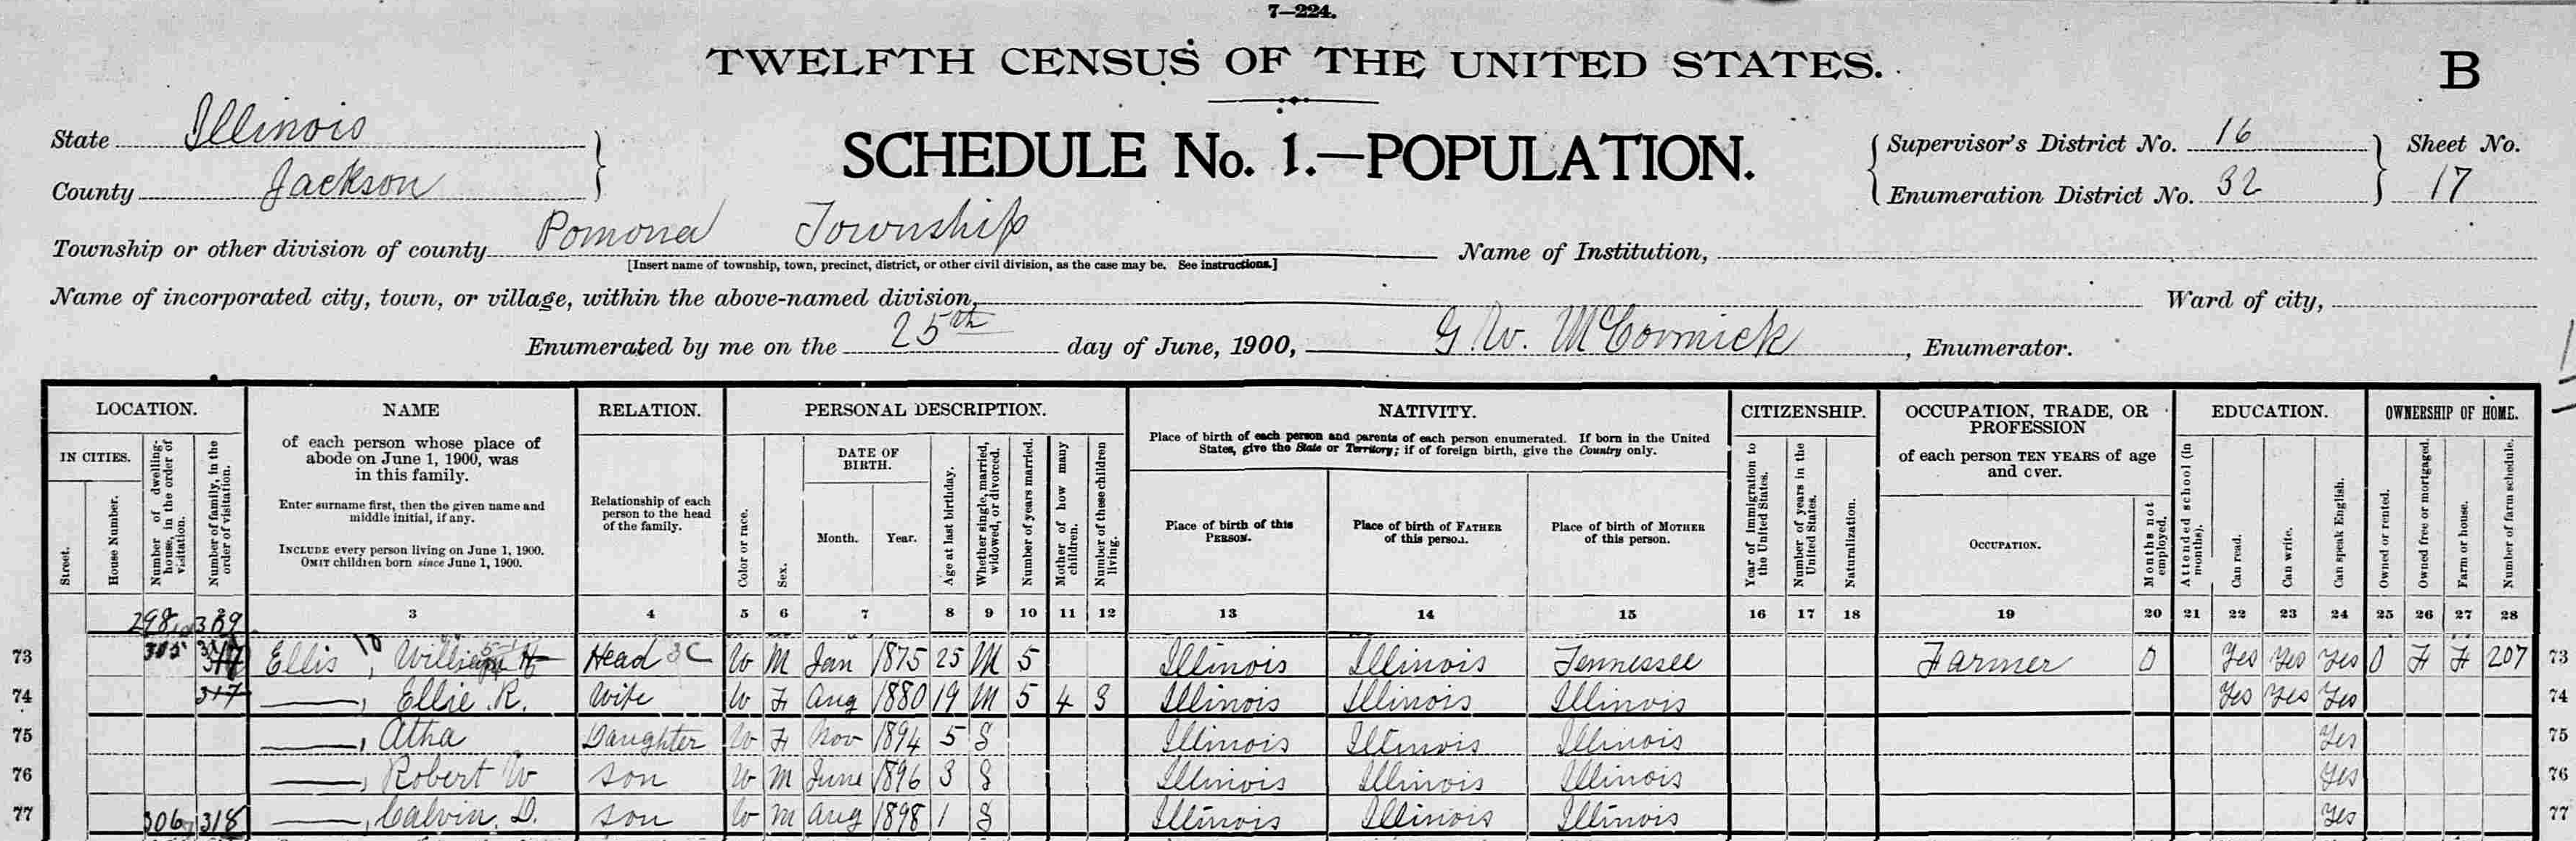 7—224.
TWELFTH CENSUS OF THE UNITED STATES.
B
State Illinois
County Jackson
SCHEDULE No. 1.—POPULATION.
Supervisor's District No. 16
Enumeration District No. 32
Sheet No.
17
Township or other division of county Pomona Township
[Insert name of township, town, precinct, district, or other civil division, as the case may be. See instructions.]
Name of Institution,
Name of incorporated city, town, or village, within the above-named division,
Ward of city,
Enumerated by me on the 25th day of June, 1900, G. W. McCormick, Enumerator.
LOCATION.
IN CITIES.
Street.
House Number.
Number of dwelling-house, in the order of visitation.
Number of family, in the order of visitation.
NAME
of each person whose place of
abode on June 1, 1900, was
in this family.
Enter surname first, then the given name and
middle initial, if any.
INCLUDE every person living on June 1, 1900.
OMIT children born since June 1, 1900.
RELATION.
Relationship of each
person to the head
of the family.
PERSONAL DESCRIPTION.
Color or race.
Sex.
DATE OF
BIRTH.
Month.
Year.
Age at last birthday.
Whether single, married,
widowed, or divorced.
Number of years married.
Mother of how many
children.
Number of these children
living.
NATIVITY.
Place of birth of each person and parents of each person enumerated. If born in the United
States, give the State or Territory; if of foreign birth, give the Country only.
Place of birth of this
PERSON.
Place of birth of FATHER
of this person.
Place of birth of MOTHER
of this person.
CITIZENSHIP.
Year of immigration to
the United States.
Number of years in the
United States.
Naturalization.
OCCUPATION, TRADE, OR
PROFESSION
of each person TEN YEARS of age
and over.
OCCUPATION.
Months not
employed.
EDUCATION.
Attended school (in
months).
Can read.
Can write.
Can speak English.
OWNERSHIP OF HOME.
Owned or rented.
Owned free or mortgaged.
Farm or house.
Number of farm schedule.
2
3 4 5 6 7 8 9 10 11 12 13 14 15 16 17 18 19 20 21 22 23 24 25 26 27 28
298 309
73 305 Ellis, William H Head W M Jan 1875 25 M 5 Illinois Illinois Tennessee Farmer 0 Yes Yes Yes O F F 207 73
74 317 ——, Ellie R. Wife W F Aug 1880 19 M 5 4 3 Illinois Illinois Illinois Yes Yes Yes 74
75 ——, Atha Daughter W F Nov 1894 5 S Illinois Illinois Illinois Yes 75
76 ——, Robert W son W M June 1896 3 S Illinois Illinois Illinois Yes 76
77 306 318 ——, Calvin D. son W M Aug 1898 1 S Illinois Illinois Illinois Yes 77